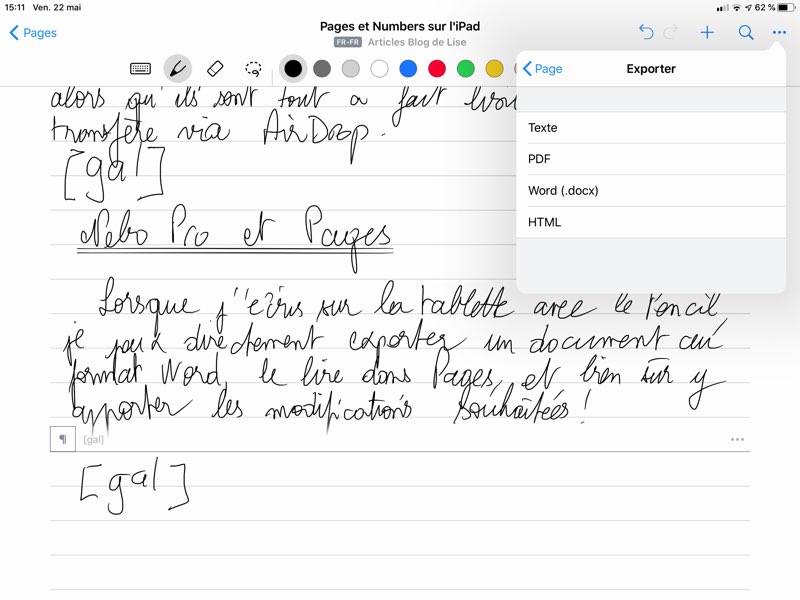 15:11 Ven. 22 mai 62 %
Pages
Pages et Numbers sur l'iPad
FR-FR Articles Blog de Lise
Page Exporter
Texte
PDF
Word (.docx)
HTML
alors qu'ils sont tout a fait
transfère via AirDrop.
[gal]
Nebo Pro et Pages
Lorsque j'écris sur la tablette avec le Pencil,
je peux directement exporter un document au
format Word, le lire dans Pages, et bien sûr y
apporter les modifications souhaitées!
[gal]
[gal]